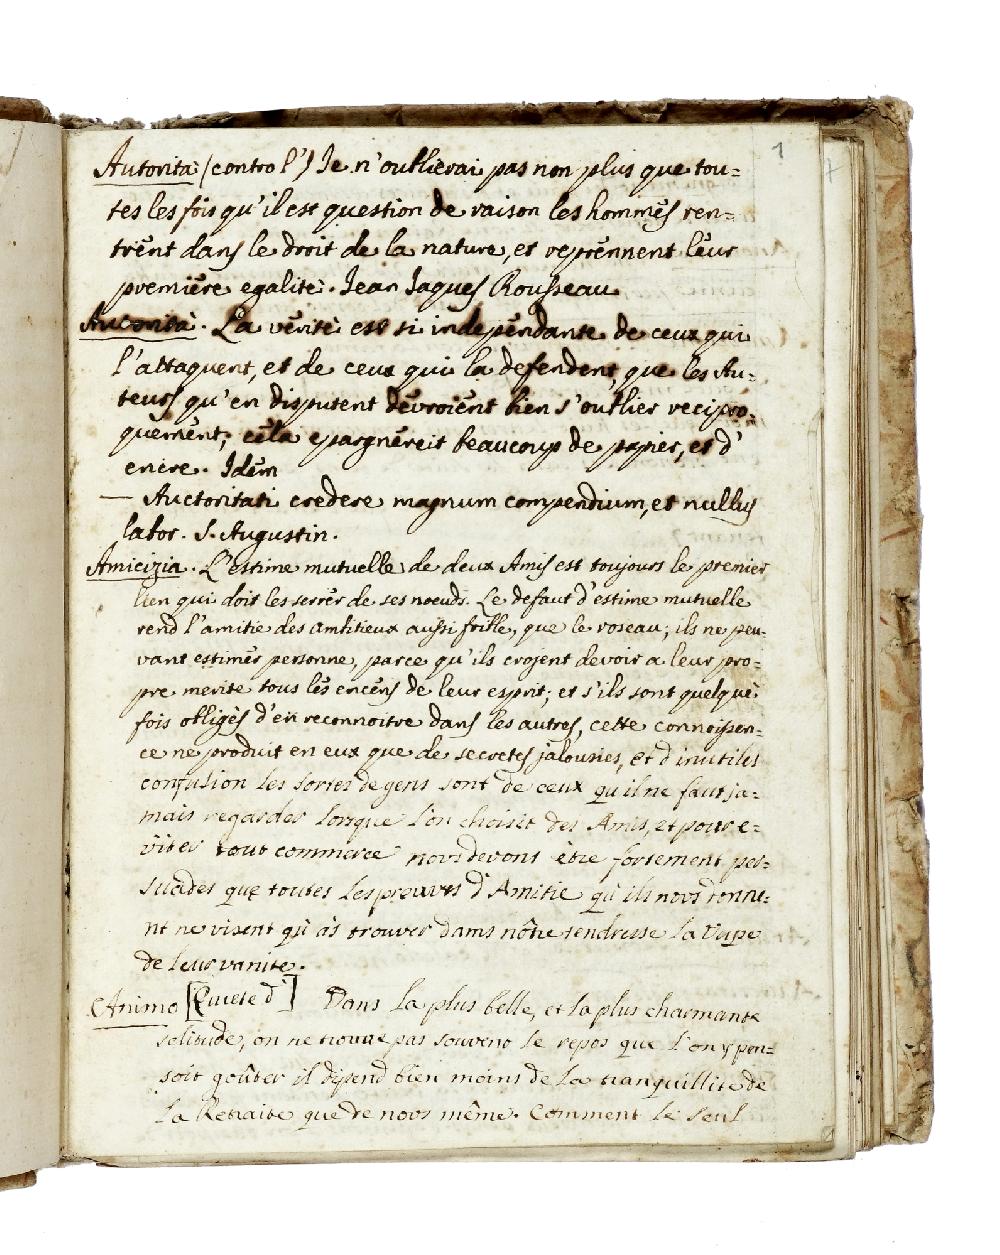 1
7
Autorità (contro l') Je n'oublierai pas non plus que tou=
tes les fois qu'il est question de raison les hommes ren=
trent dans le droit de la nature, et reprennent leur
première egalitè. Jean Jaques Rousseau
Autorità. La véritè est si indépendante de ceux qui
l'attaquent, et de ceux qui la defendent que les Au=
teurs qu'en disputent dévroient bien s'oublier recipro=
quement; cela epargnereit beaucoup de papier, et d'
encre. Idem
— Auctoritati credere magnum compendium, et nullus
labor. S. Augustin.
Amicizia. L'estime mutuelle de deux Amis est toujours le premier
lien qui doit les serrer de ses noeuds. Le defaut d'estime mutuelle
rend l'amitie des ambitieux aussi foible, que le roseau; ils ne peu=
vant estimer personne, parce qu'ils crojent devoir a leur pro=
pre merite tous les encens de leur esprit; et s'ils sont quelque
fois obligès d'en reconnoitre dans les autres, cette connoissen=
ce ne produit en eux que de secretes jalousies, et d'inutiles
confusion les sortes de gens sont de ceux qu'il ne faut ja=
mais regarder lorsque l'on choisit des Amis, et pour e=
viter tout commerce nous devons être fortement per=
suades que toutes les preuves d'Amitie qu'ils nous donne=
nt ne visent qu'à trouver dams nôtre tendresse la Dupe
de leur vanite.
Animo [Quiete d'] Dans la plus belle, et la plus charmante
solitude, on ne trouve pas souvent le repos que l'on y pen=
soit goûter il dépend bien moins de la tranquillite de
la Retraite que de nous même. Comment le seul